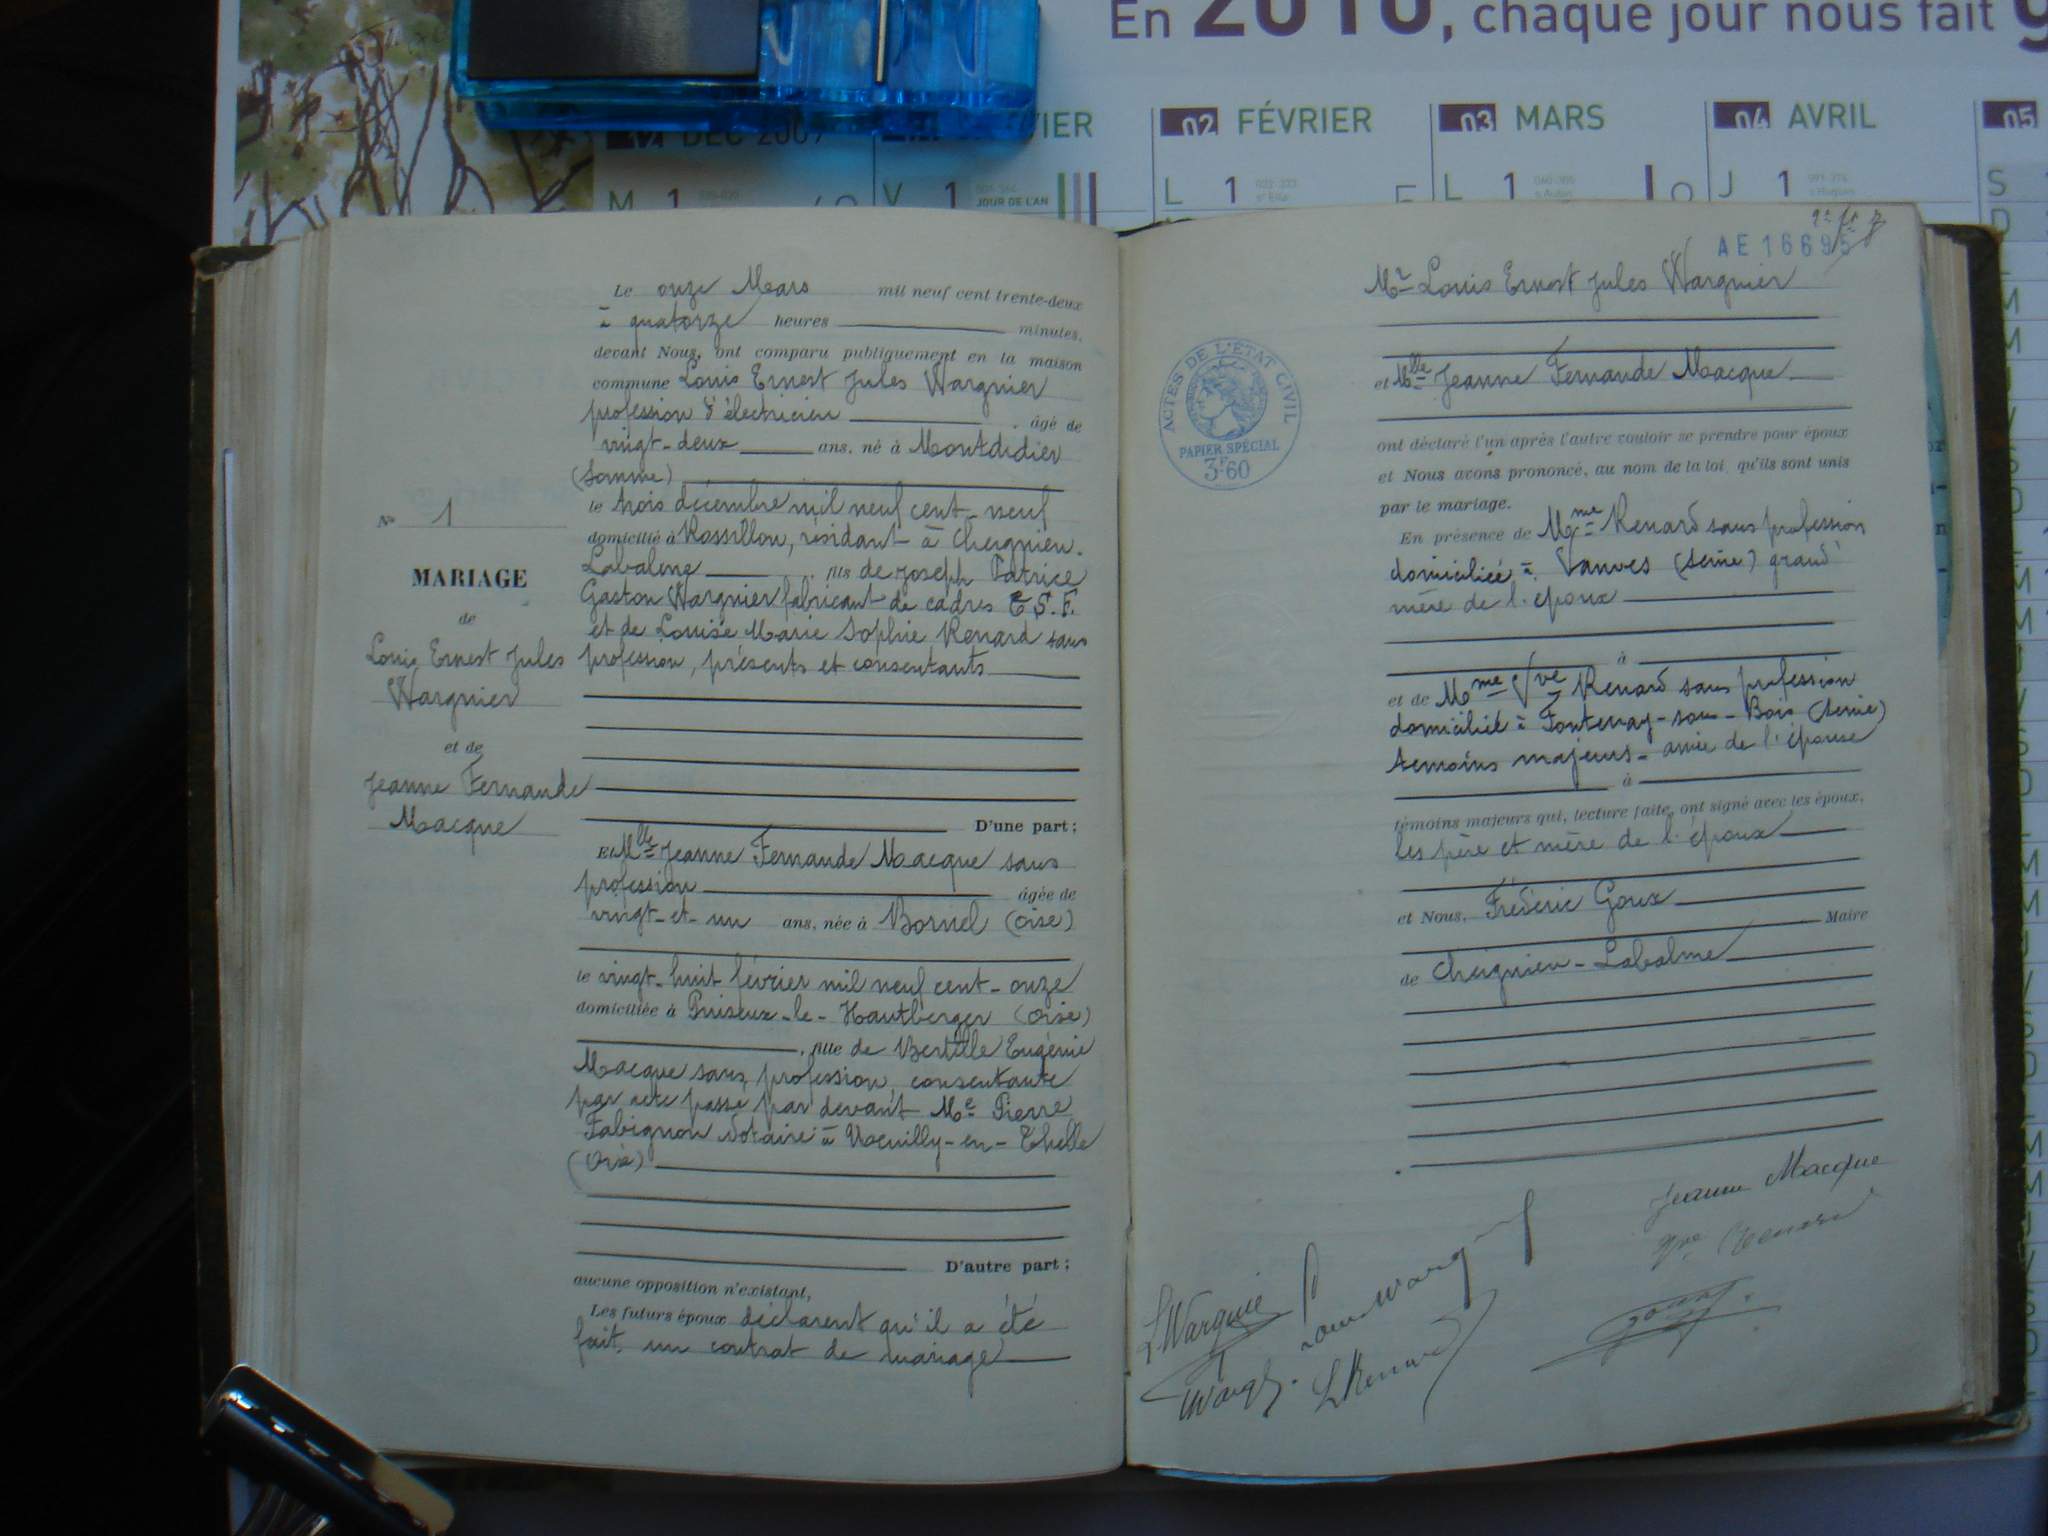 En 2010, chaque jour nous fait g
DÉC 2009
VIER
02 FÉVRIER
03 MARS
04 AVRIL
05
M 1
V 1
JOUR DE L'AN
L 1
L 1
J 1
S
D
Le onze Mars mil neuf cent trente-deux
à quatorze heures minutes,
devant Nous, ont comparu publiquement en la maison
commune Louis Ernest Jules Wargnier
profession d'électricien , âgé de
vingt-deux ans, né à Montdidier
(Somme)
le trois décembre mil neuf cent-neuf
domicilié à Rossillon, résidant à Cheignieu-
Labalme , fils de Joseph Patrice
Gaston Wargnier fabricant de cadres T.S.F.
et de Louise Marie Sophie Renard sans
profession, présents et consentants
D'une part ;
Et Mlle Jeanne Fernande Macque sans
profession âgée de
vingt-et-un ans, née à Bornel (Oise)
le vingt-huit février mil neuf cent-onze
domiciliée à Puiseux-le-Hautberger (Oise)
, fille de Bertille Eugénie
Macque sans profession, consentante
par acte passé par devant Me Pierre
Fabignon Notaire à Neuilly-en-Thelle
(Oise)
D'autre part ;
aucune opposition n'existant,
Les futurs époux déclarent qu'il a été
fait un contrat de mariage
N° 1
MARIAGE
de
Louis Ernest Jules
Wargnier
et de
Jeanne Fernande
Macque
AE 16695
ACTES DE L'ÉTAT CIVIL
PAPIER SPÉCIAL
3F60
Mr Louis Ernest Jules Wargnier
et Mlle Jeanne Fernande Macque
ont déclaré l'un après l'autre vouloir se prendre pour époux
et Nous avons prononcé, au nom de la loi, qu'ils sont unis
par le mariage.
En présence de Mme Renard sans profession
domiciliée à Vanves (Seine) grand'
mère de l'époux
à
et de Mme Vve Renard sans profession
domiciliée à Fontenay-sous-Bois (Seine)
témoins majeurs - amie de l'épouse
à
témoins majeurs qui, lecture faite, ont signé avec les époux,
les père et mère de l'époux
et Nous, Frédéric Goux
Maire
de Cheignieu-Labalme
Jeanne Macque
Vve Renard
L Wargnier
L Renard
Goux